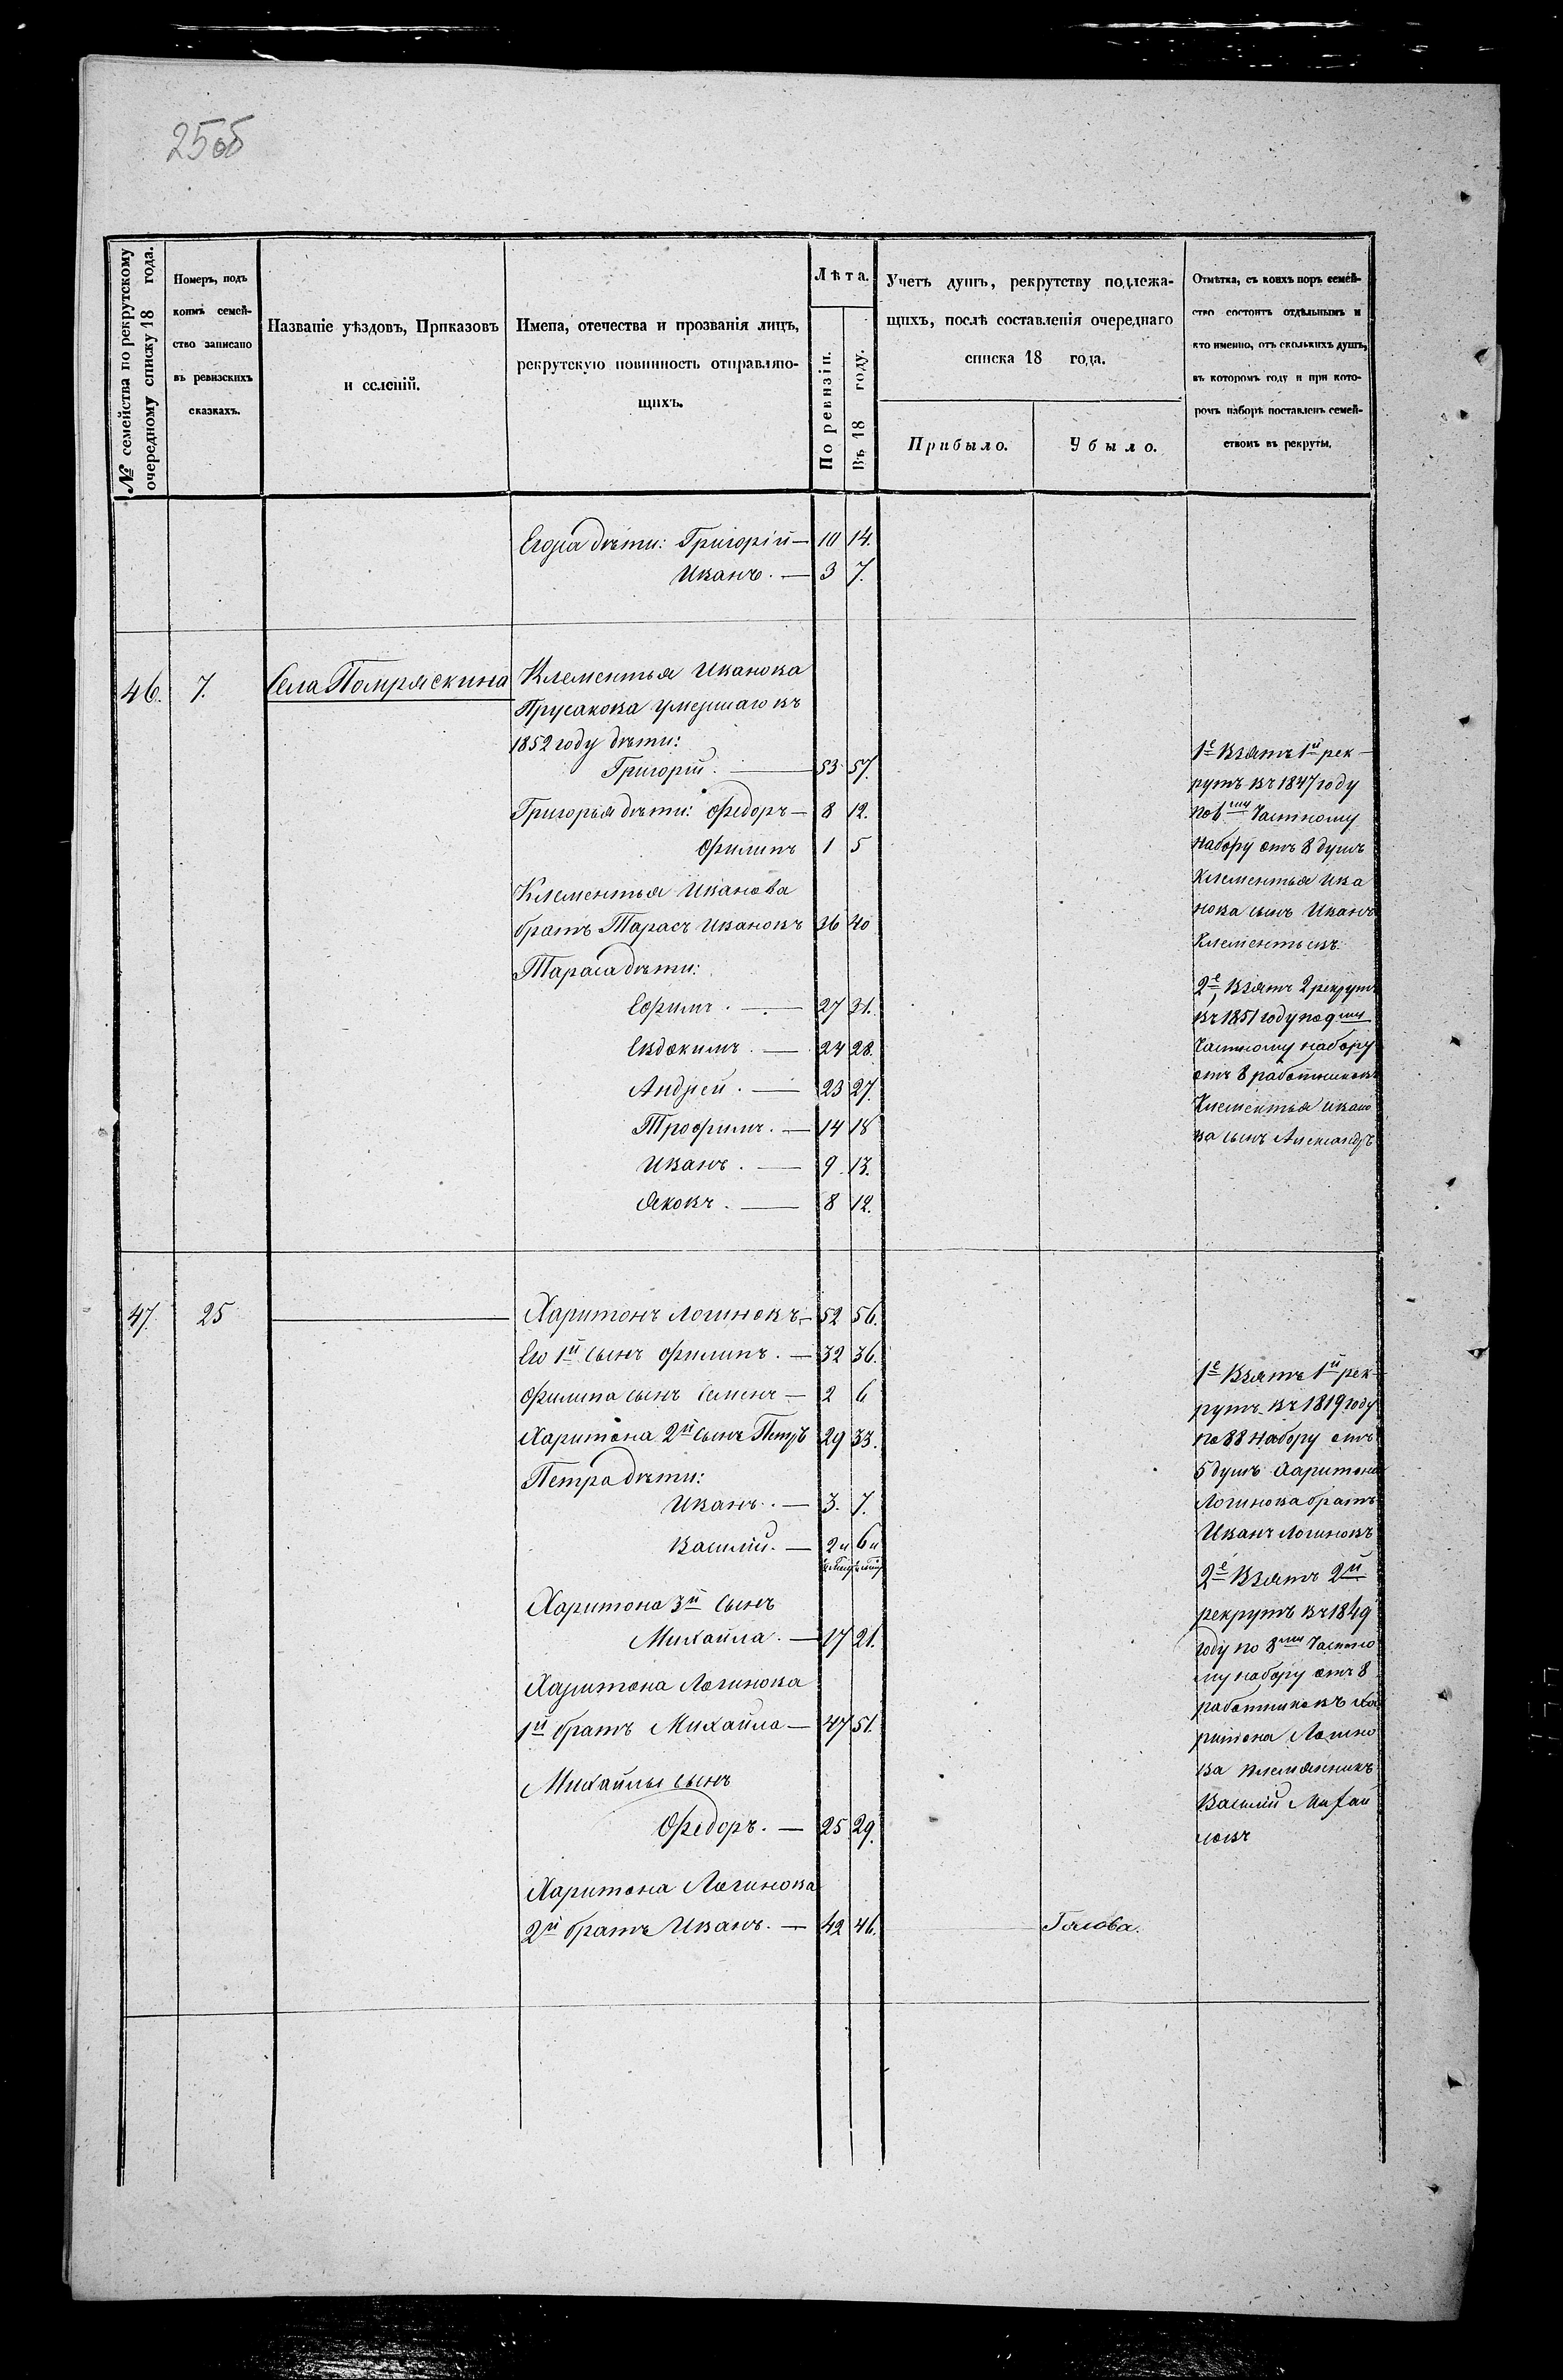 25об
№ семейства по рекрутскому
очередному списку 18 года.
Номеръ, подъ
коимъ семей-
ство записано
въ ревизскихъ
сказкахъ.
Названіе уѣздовъ, Приказовъ
и селеній.
Имена, отечества и прозванія лицъ,
рекрутскую повинность отправляю-
щихъ.
Лѣта.
По ревизіи.
Въ 18 году.
Учетъ душъ, рекрутству подлежа-
щихъ, послѣ составленія очереднаго
списка 18 года.
Прибыло.
Убыло.
Отмѣтка, съ коихъ поръ семей-
ство состоитъ отдѣльнымъ и
кто именно, отъ сколькихъ душъ,
въ которомъ году и при кото-
ромъ наборѣ поставленъ семей-
ствомъ въ рекруты.
Егора дѣти: Григорій — 10 14.
Иванъ. — 3 7.
46. 7. Села Помряскина Клементья Иванова
Прусакова умершаго въ
1852 году дѣти:
Григорій. — 53 57.
Григорья дѣти: Федоръ — 8 12.
Филипъ 1 5
Клементья Иванова
братъ Тарасъ Ивановъ 36 40
Тараса дѣти:
Ефимъ. — 27 31.
Евдокимъ. — 24 28.
Андрей. — 23 27.
Трофимъ. — 14 18
Иванъ. — 9. 13.
Яковъ. — 8 12.
1е Взятъ 1й рек-
рутъ въ 1847 году
по 6му Частному
набору отъ 8 душъ
Клементья Ива
нова сынъ Иванъ
Клементьевъ.
2е, Взятъ 2 рекрутъ
въ 1851 году по 9му
Частному набору
отъ 8 работниковъ
Клементья Ивано
ва сынъ Александръ
47. 25 — Харитонъ Логиновъ — 52 56.
Его 1й сынъ Филипъ. — 32 36.
Филипа сынъ Семенъ — 2 6
Харитона 2й сынъ Петръ 29 33.
Петра дѣти:
Иванъ. — 3. 7.
Василій. — 2н 6н
Харитона 3й сынъ
Михайла. — 17 21.
Харитона Логинова
1й братъ Михайло — 47 51.
Михайлы сынъ
Федоръ. — 25 29.
Харитона Логинова
2й братъ Иванъ. — 42 46. Голова.
1е Взятъ 1й рек-
рутъ въ 1819 году
по 88 набору отъ
5 душъ Харитона
Логинова братъ
Иванъ Логиновъ
2е Взятъ 2й
рекрутъ въ 1849
году по 8му Частно
му набору отъ 8
работниковъ Ха
ритона Логино
ва племянникъ
Василій Михай
ловъ